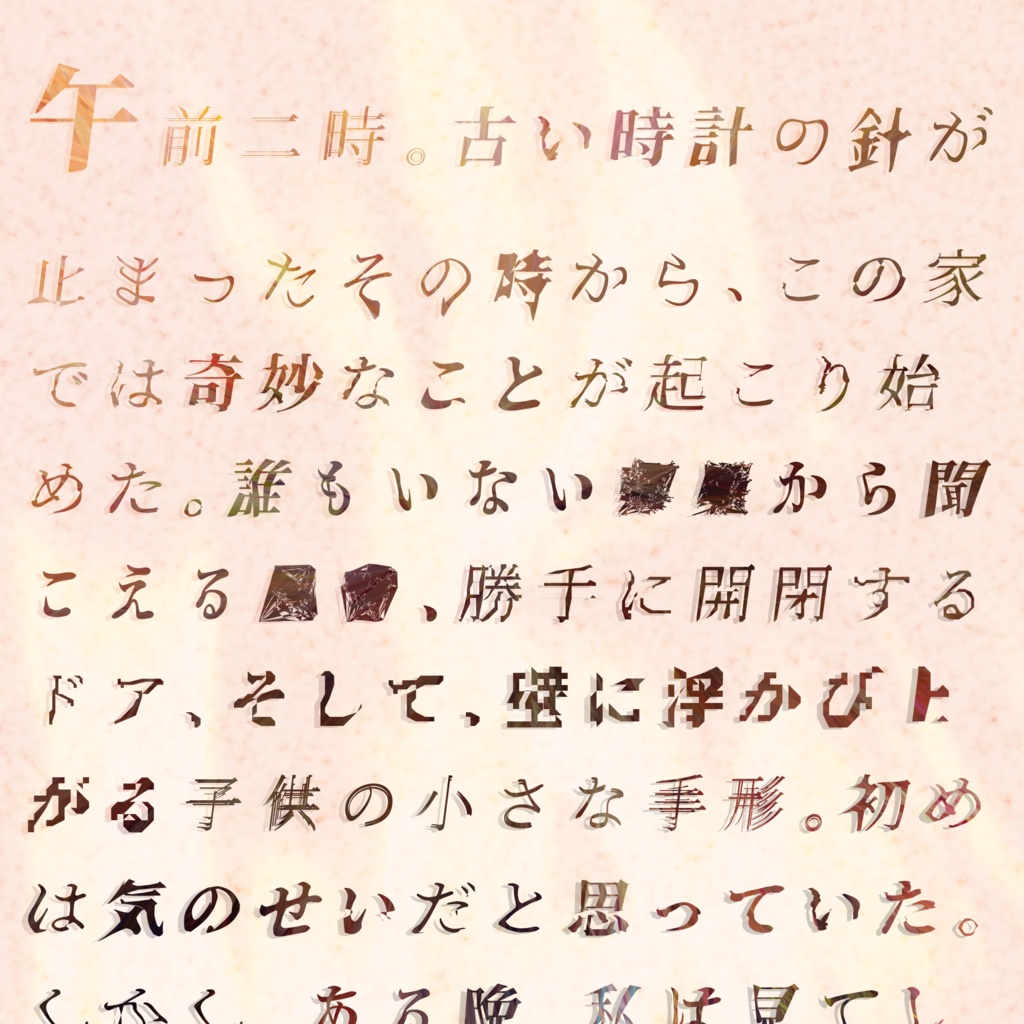 午前二時。古い時計の針が
止まったその時から、この家
では奇妙なことが起こり始
めた。誰もいない から聞
こえる 、勝手に開閉する
ドア、そして、壁に浮かび上
がる子供の小さな手形。初め
は気のせいだと思っていた。
しかし、ある晩、私は見てし